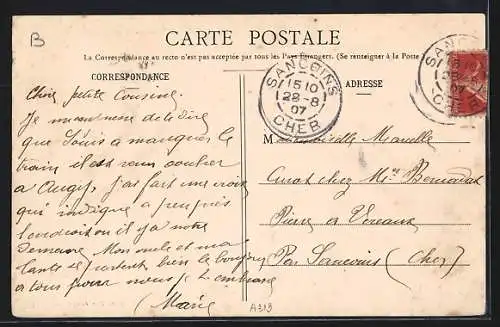 B
CARTE POSTALE
La Correspondance au recto n'est pas acceptée par tous les Pays étrangers. (Se renseigner à la Poste
CORRESPONDANCE
ADRESSE
SANCOINS
15 10
28-8
07
CHER
SANCOINS
15 10
28-8
07
CHER
Chère petite Cousine.
Je m'empresse de te dire
que Louis a manqué le
train il est venu coucher
a Augy, j'ai fait une croix
qui indique a peu près
l'endroit ou il y a notre
demeure Mon oncle et ma
tante se portent bien le bonjour
a tous pour nous je t'embrasse
Marie
Mademoiselle Marcelle
chez Mr
Pierre a Vereaux
Par Sancoins (Cher)
A313